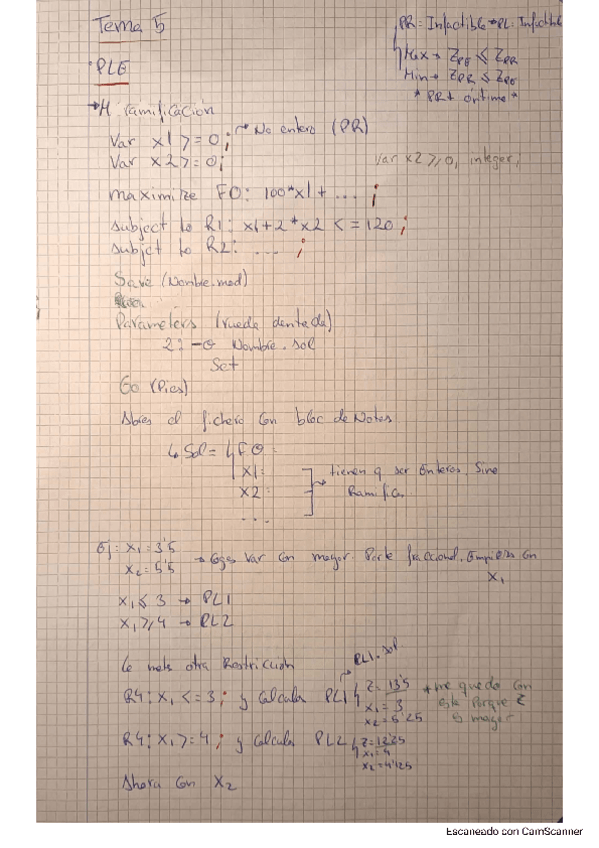 Tema 5
PR: Infactible → PL: Infactible
Max → Z_PE ≤ Z_PR
Min → Z_PR ≤ Z_PE
* PR+ óptimo *
· PLE
→ M. ramificación
Var x1 >= 0; → No entero (PR)
Var x2 >= 0;
Var x2 >= 0, integer;
maximize FO: 100*x1 + ... ;
subject to R1: x1+2*x2 <= 120;
subjct to R2: ... ;
Save (Nombre.mod)
Parameters (rueda dentada)
2: -o Nombre.sol
Set
Go (Pies)
Abres el fichero con bloc de Notas
↳ Sol = FO:
x1:
x2:
...
→ tienen q ser Enteros, Sino
Ramificas
Ej: x₁ = 3'5
x₂ = 5'5
→ Coges Var con mayor. Parte fraccional. Empiezas con
x₁
x₁ ≤ 3 → PL1
x₁ ≥ 4 → PL2
Le metes otra Restricción
PL1.sol
R4: x₁ <= 3; y Calcula PL1 Z= 13'5
x₁ = 3
x₂ = 5'25
* me quedo con
este porque Z
es mayor
R4: x₁ >= 4; y Calcula PL2 Z=12'25
x₁=4
x₂=4'125
Ahora con x₂
Escaneado con CamScanner